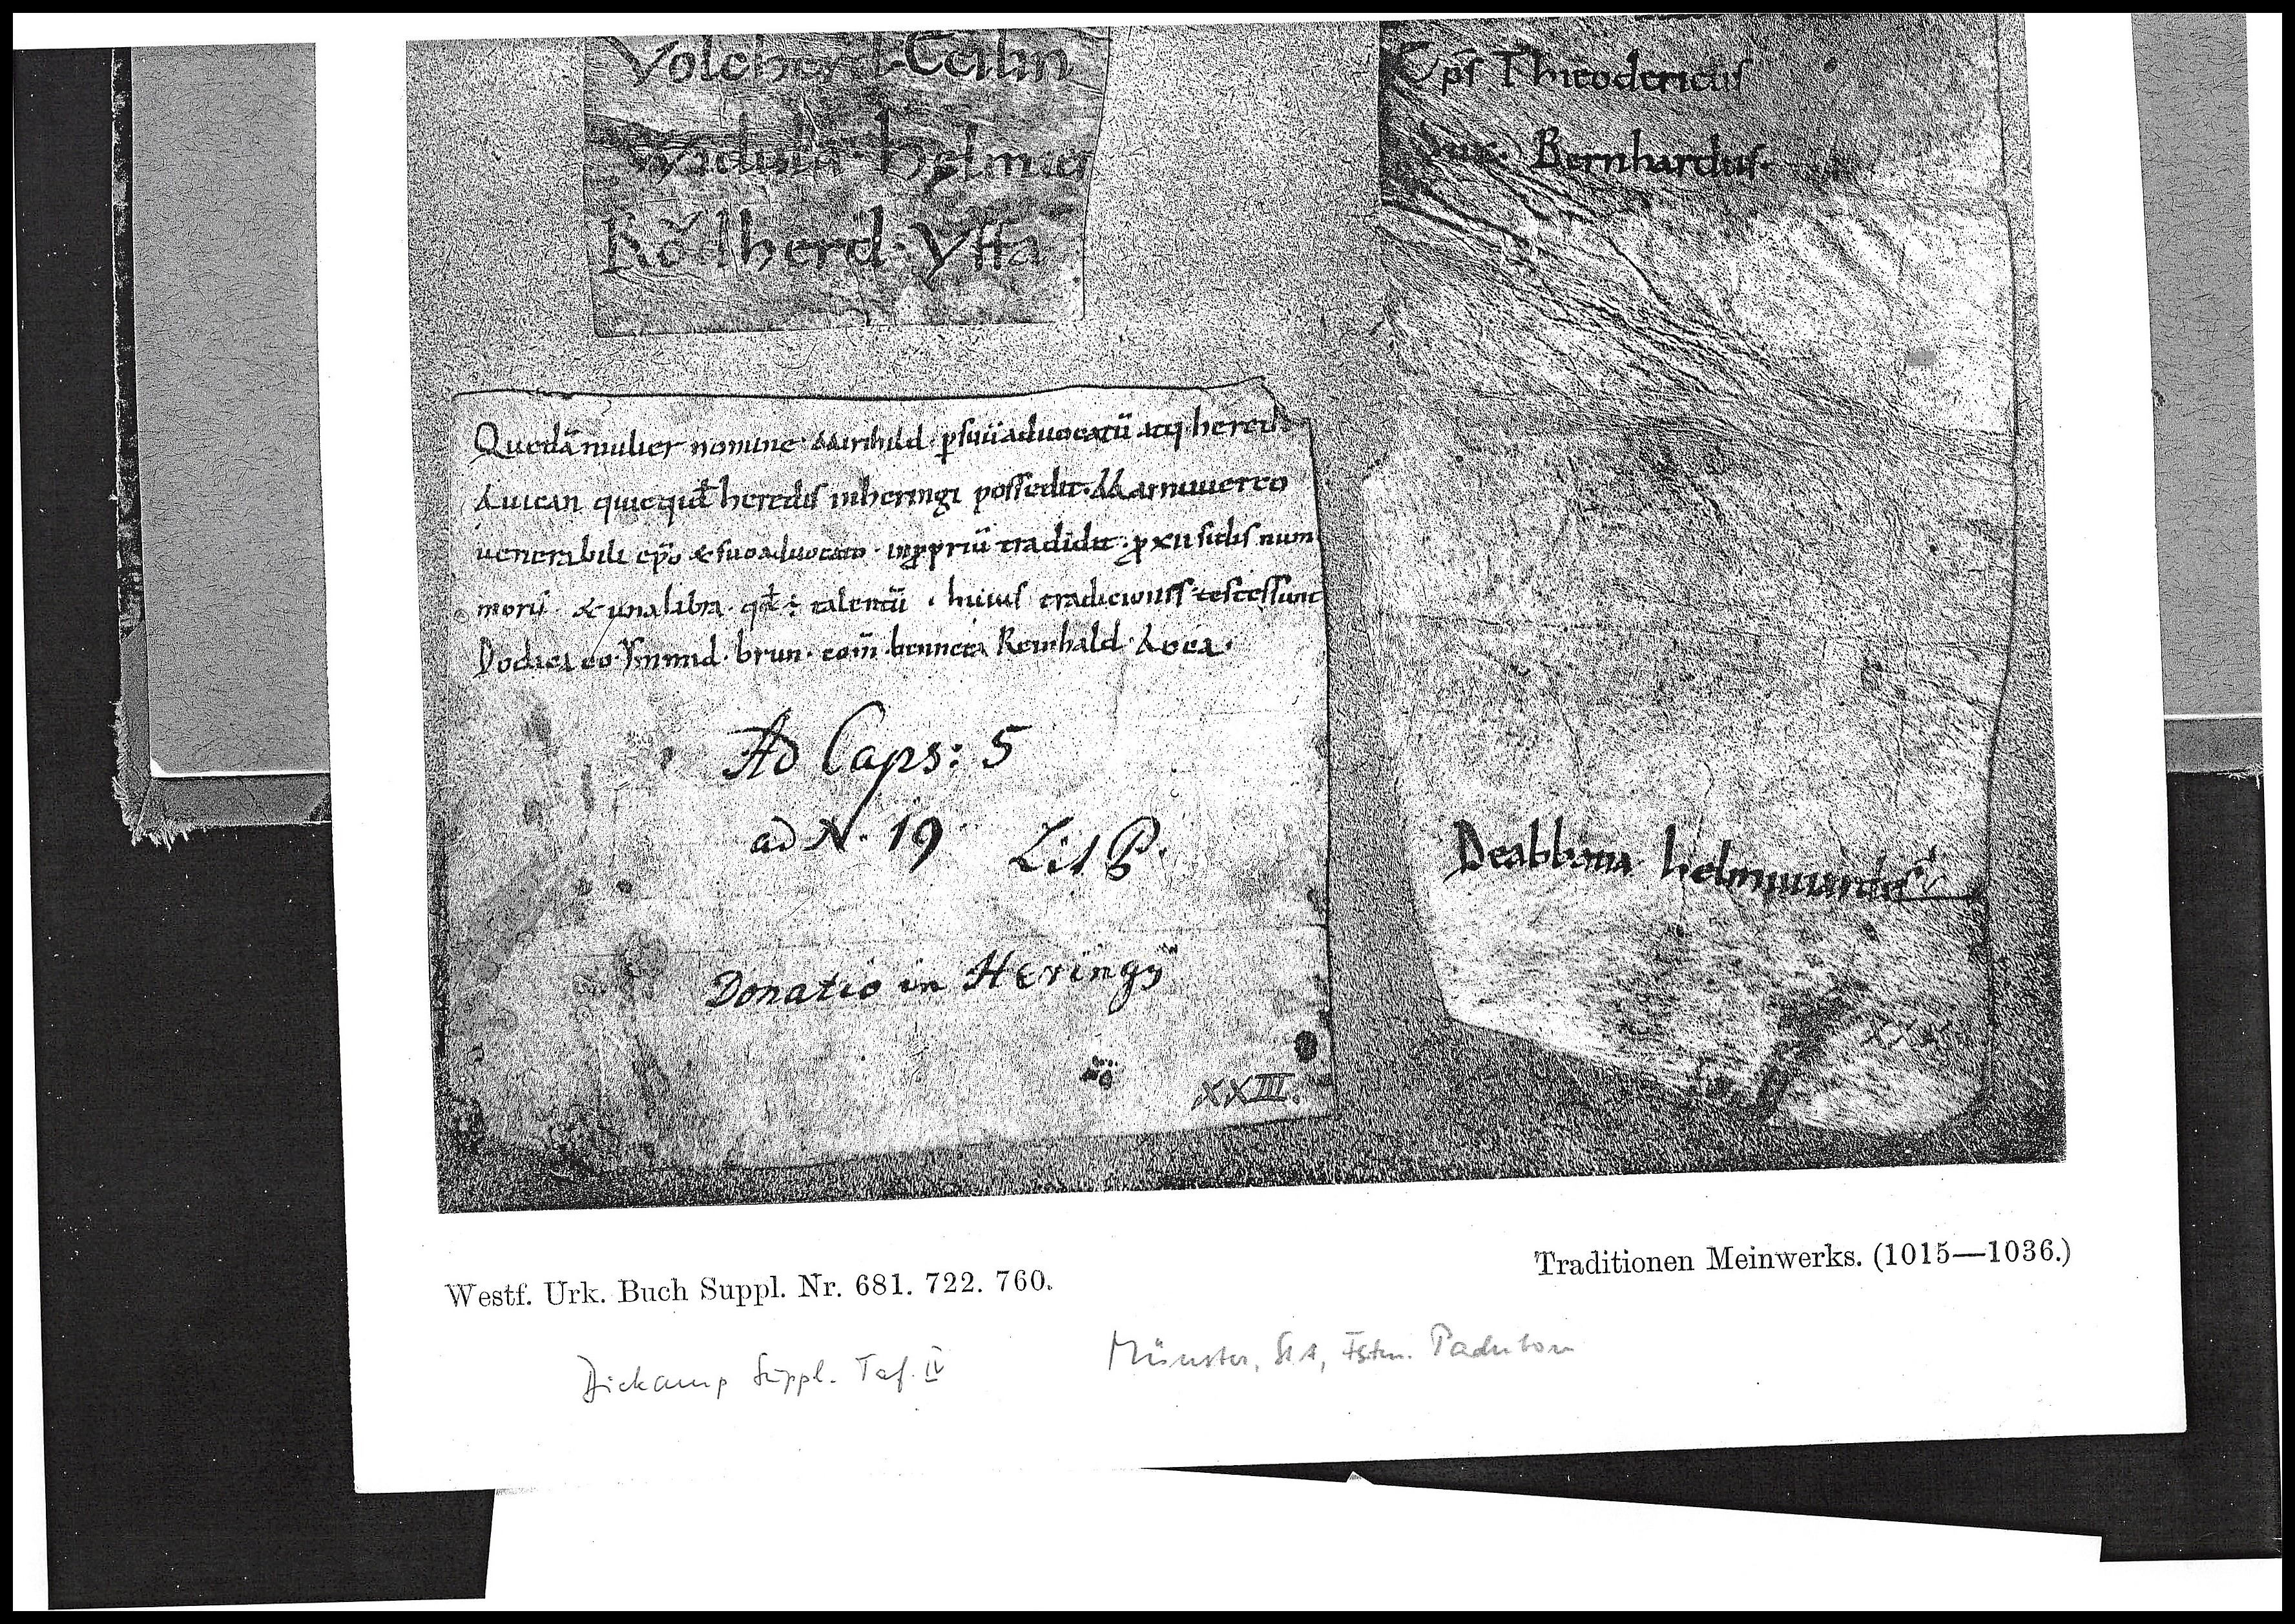 Volcherd. Ecilin
helmier
Rǒdherd. Yffa
Ep̅s Thieodericus
Dux. Bernhardus.
Quedā mulier nomine. Mirihild. p̱ suū aduocatū atq; heredē
Auican quicquid heredis in heringi possedit. Mæinuuerco
uenerabili ep̅o & suo aduocato. in propriū tradidit. p̱ xii siclis num
morū. & una libra. qd̅ ÷ talentū. huius tradicioniss testes sunt
Dodica co. Ymmid. brun. com̅. bennica Reinhald. Aoca.
Ad Caps: 5
ad N. 19 Lit P.
Donatio in Heringÿ
XXIII.
De abbatia helmwardes
XXX
Westf. Urk. Buch Suppl. Nr. 681. 722. 760.
Traditionen Meinwerks. (1015—1036.)
Diekamp Suppl. Taf. IV
Münster, StA, Fstm. Paderborn